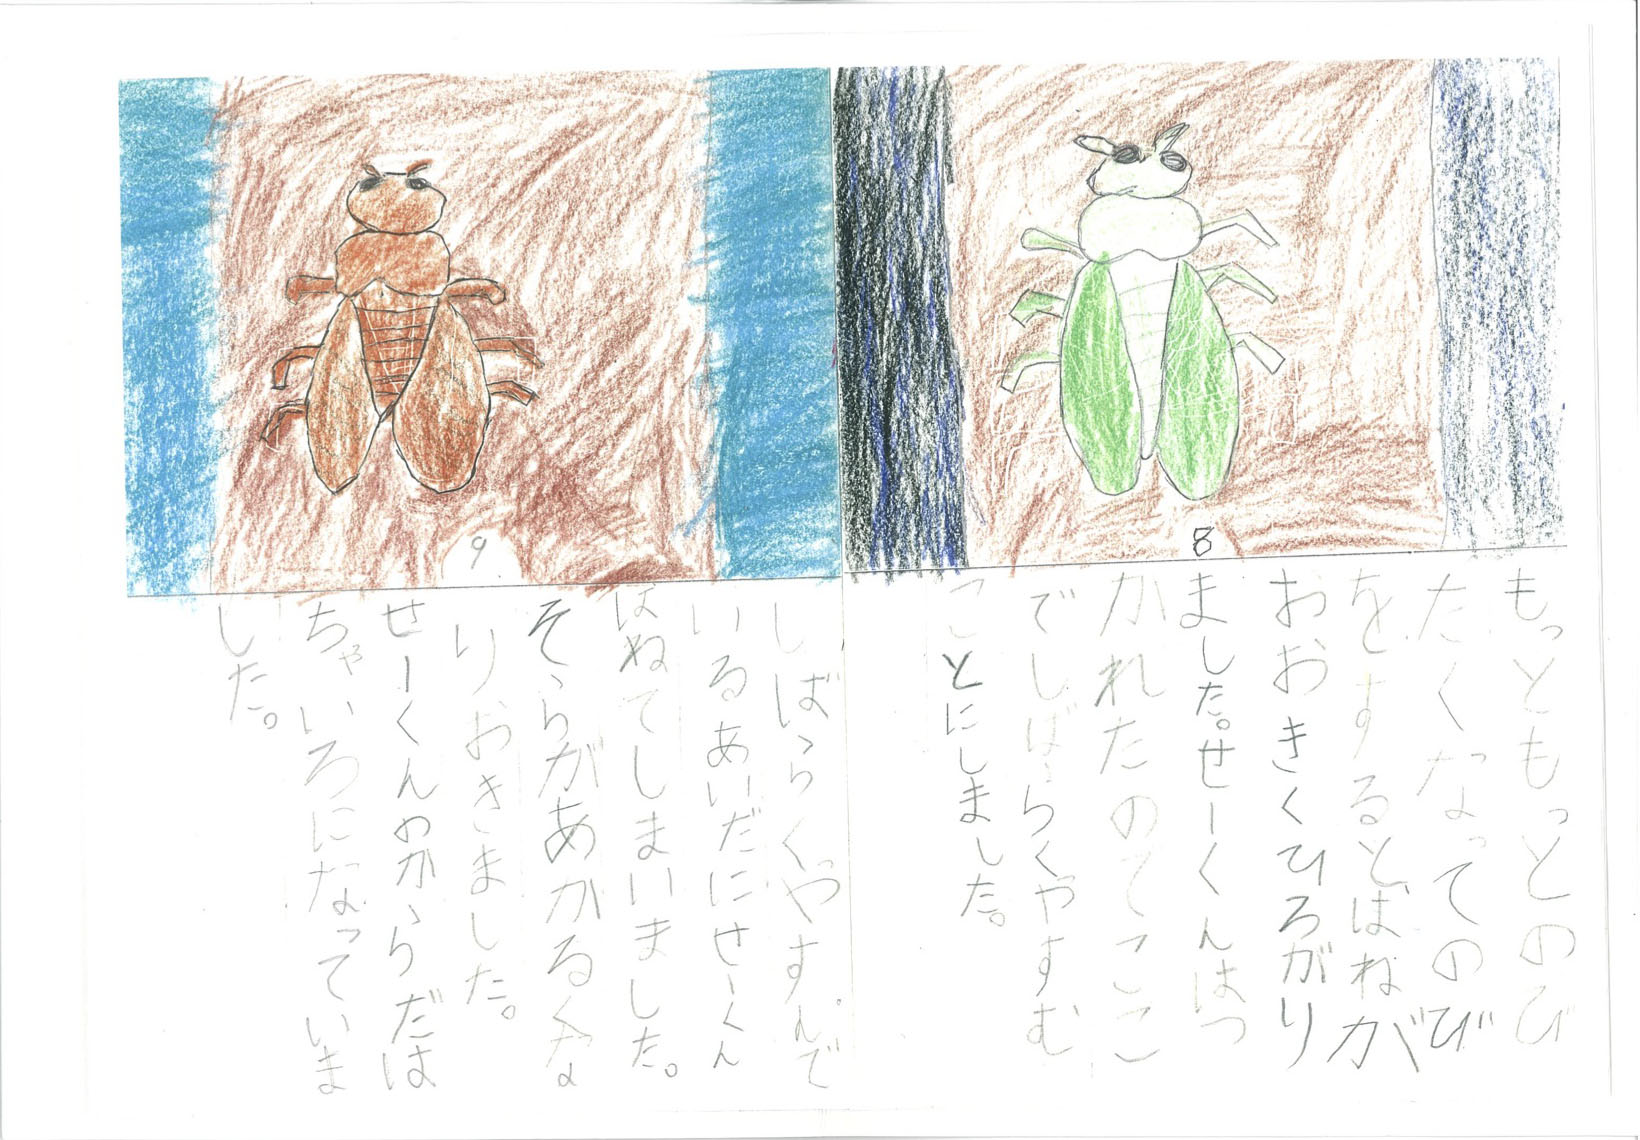 8
もっともっとのび
たくなってのび
をするとはねが
おおきくひろがり
ました。せーくんはつ
かれたのでここ
でしばらくやすむ
ことにしました。
9
しばらくやすんで
いるあいだにせーくん
はねてしまいました。
そらがあかるくな
りおきました。
せーくんのからだは
ちゃいろになっていま
した。